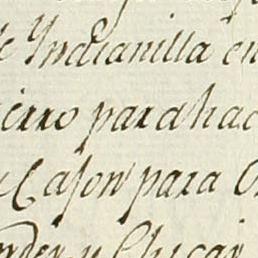 e Yndianilla en
ierro para hac
Cason para
nder y Chicar